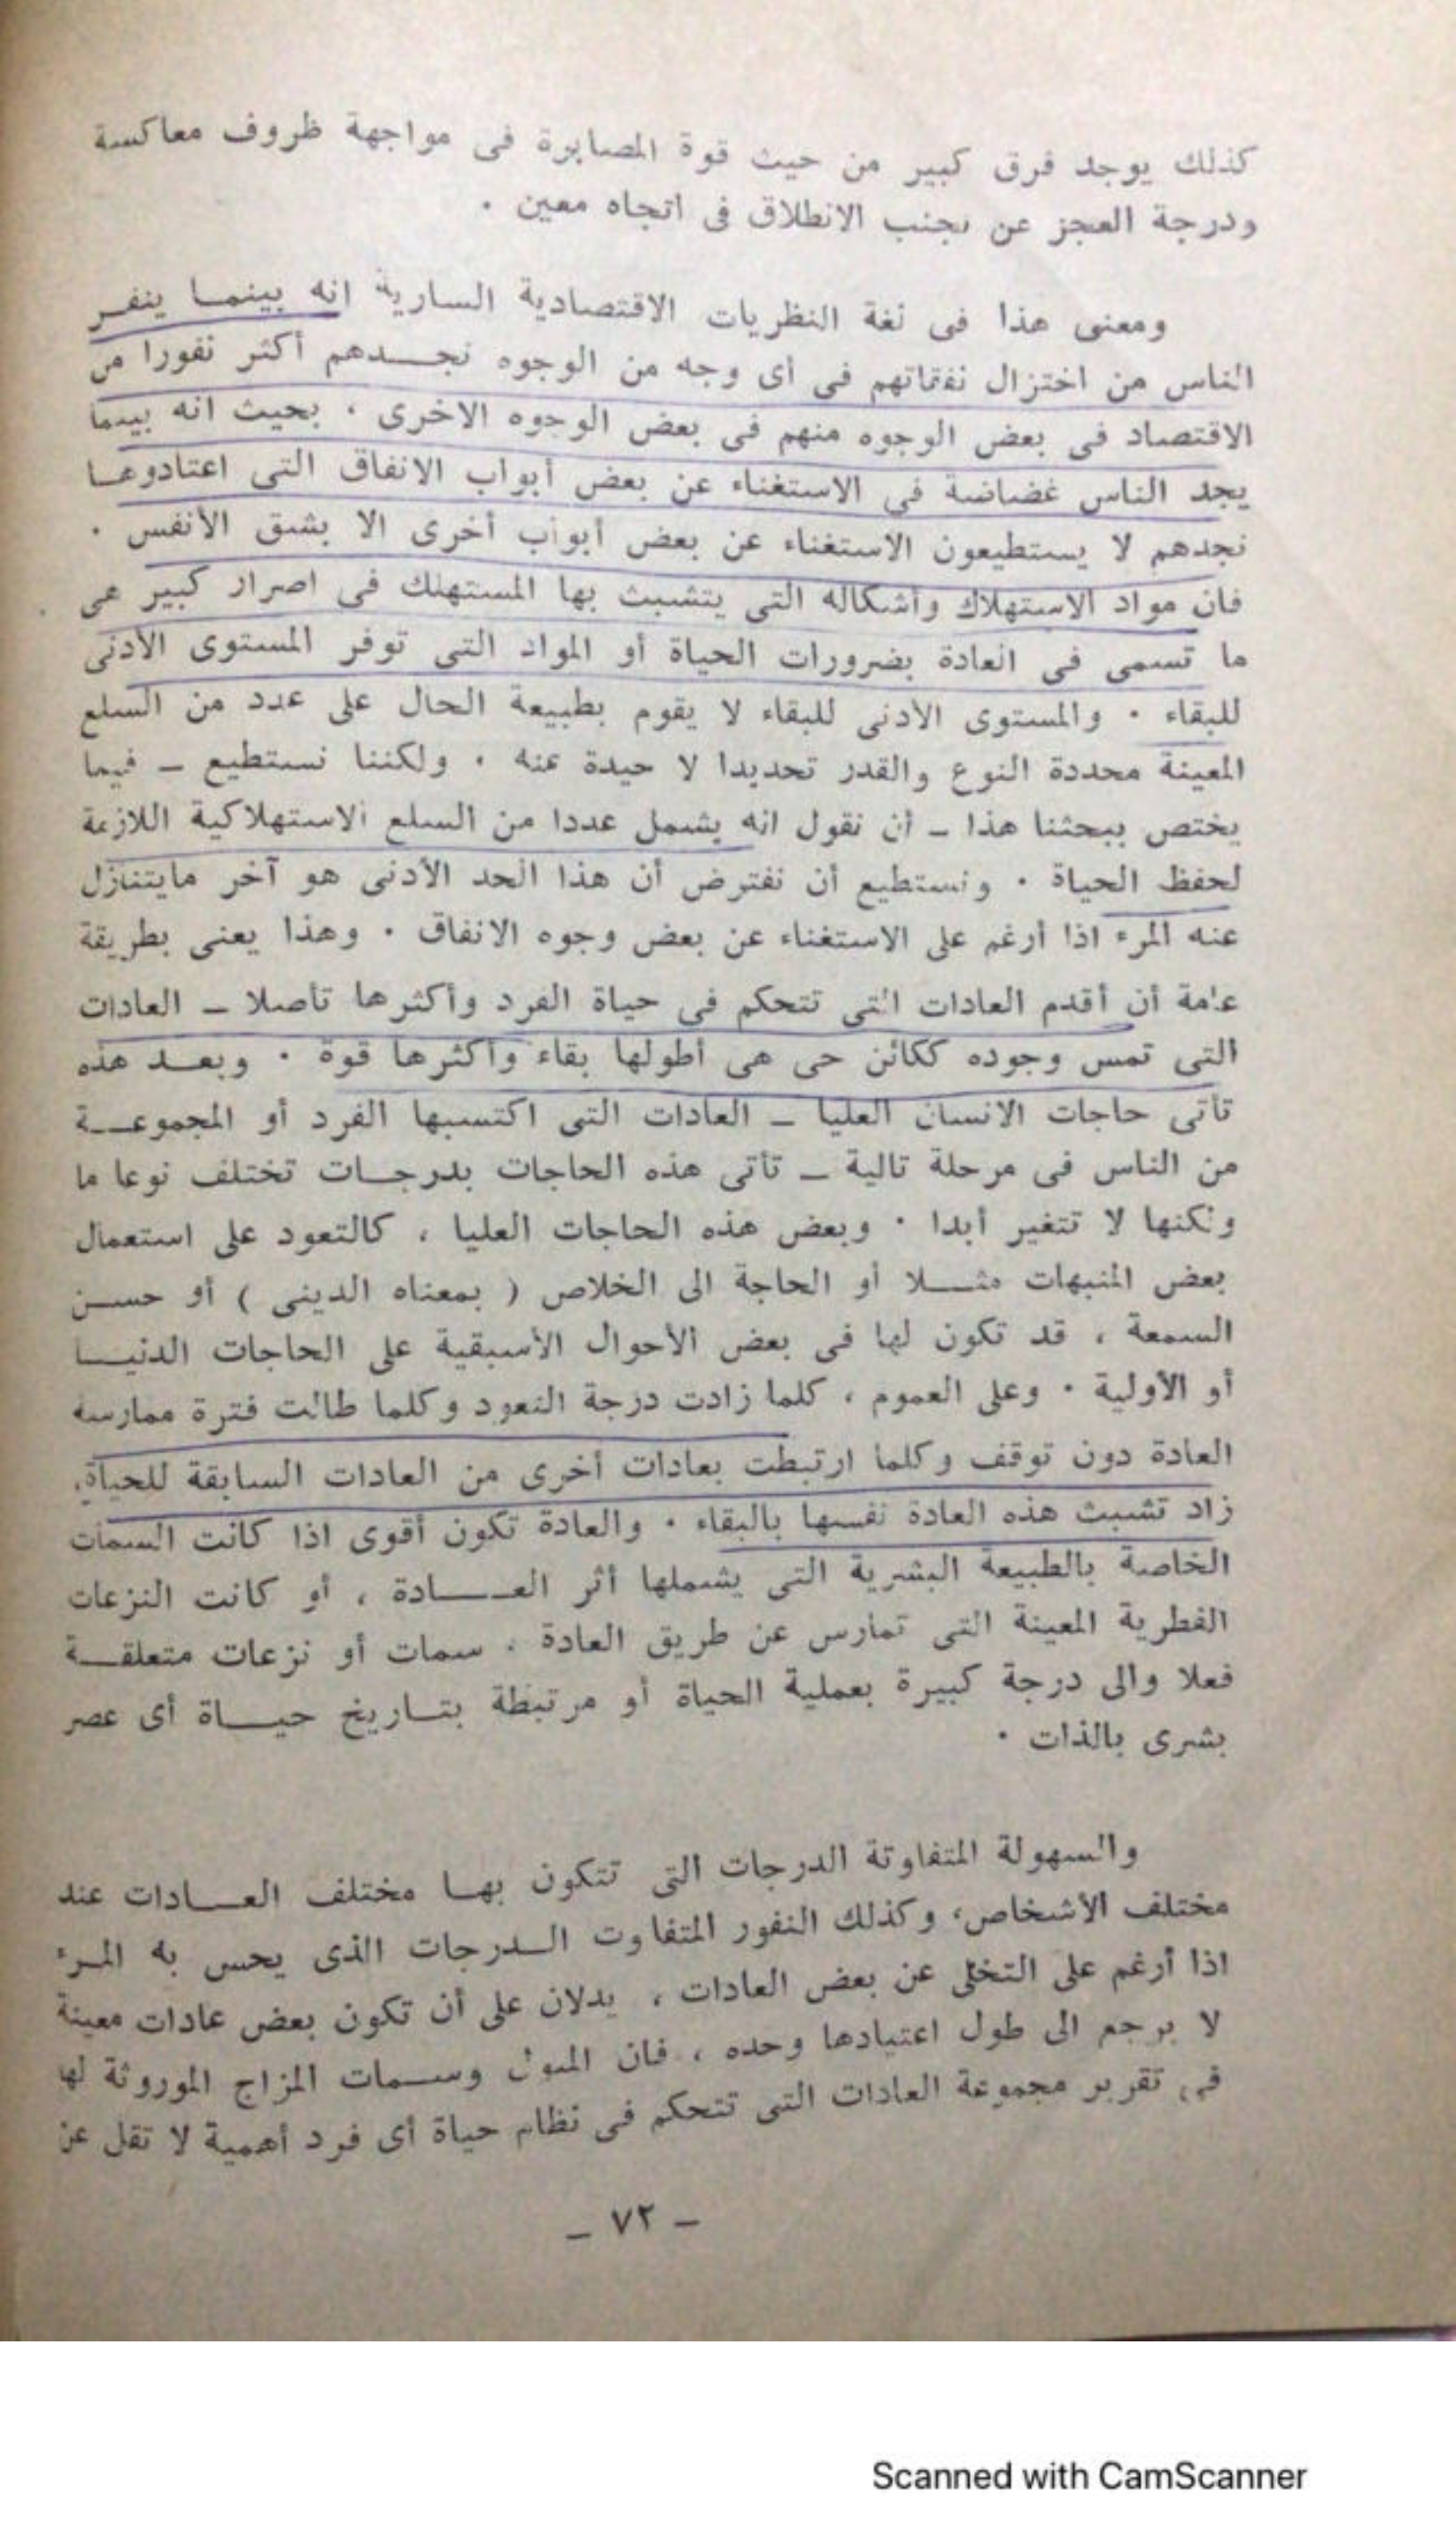 كذلك يوجد فرق كبير من حيث قوة المصابرة فى مواجهة ظروف معاكسة
ودرجة العجز عن تجنب الانطلاق فى اتجاه معين ٠
ومعنى هذا فى لغة النظريات الاقتصادية السارية انه بينمـا ينفـر
الناس من اختزال نفقاتهم فى أى وجه من الوجوه نجـــدهم أكثر نفورا من
الاقتصاد فى بعض الوجوه منهم فى بعض الوجوه الاخرى ٠ بحيث انه بينما
يجد الناس غضاضة فى الاستغناء عن بعض أبواب الانفاق التى اعتادوهـا
نجدهم لا يستطيعون الاستغناء عن بعض أبواب أخرى الا بشق الأنفس ٠
فان مواد الاستهلاك وأشكاله التى يتشبث بها المستهلك فى اصرار كبير هى
ما تسمى فى العادة بضرورات الحياة أو المواد التى توفر المستوى الأدنى
للبقاء ٠ والمستوى الأدنى للبقاء لا يقوم بطبيعة الحال على عدد من السلع
المعينة محددة النوع والقدر تحديدا لا حيدة عنه ٠ ولكننا نستطيع ــ فيما
يختص ببحثنا هذا ــ أن نقول انه يشمل عددا من السلع الاستهلاكية اللازمة
لحفظ الحياة ٠ ونستطيع أن نفترض أن هذا الحد الأدنى هو آخر مايتنازل
عنه المرء اذا أرغم على الاستغناء عن بعض وجوه الانفاق ٠ وهذا يعنى بطريقة
عامة أن أقدم العادات التى تتحكم فى حياة الفرد وأكثرها تأصلا ــ العادات
التى تمس وجوده ككائن حى هى أطولها بقاء وأكثرها قوة ٠ وبعــد هذه
تأتى حاجات الانسان العليا ــ العادات التى اكتسبها الفرد أو المجموعــة
من الناس فى مرحلة تالية ــ تأتى هذه الحاجات بدرجــات تختلف نوعا ما
ولكنها لا تتغير أبدا ٠ وبعض هذه الحاجات العليا ، كالتعود على استعمال
بعض المنبهات مثـــلا أو الحاجة الى الخلاص ( بمعناه الدينى ) أو حســن
السمعة ، قد تكون لها فى بعض الأحوال الأسبقية على الحاجات الدنيــا
أو الأولية ٠ وعلى العموم ، كلما زادت درجة التعود وكلما طالت فترة ممارسة
العادة دون توقف وكلما ارتبطت بعادات أخرى من العادات السابقة للحياة،
زاد تشبث هذه العادة نفسها بالبقاء ٠ والعادة تكون أقوى اذا كانت السمات
الخاصة بالطبيعة البشرية التى يشملها أثر العـــــادة ، أو كانت النزعات
الفطرية المعينة التى تمارس عن طريق العادة ، سمات أو نزعات متعلقــة
فعلا والى درجة كبيرة بعملية الحياة أو مرتبطة بتــاريخ حيـــاة أى عصر
بشرى بالذات ٠
والسهولة المتفاوتة الدرجات التى تتكون بهــا مختلف العـــادات عند
مختلف الأشخاص، وكذلك النفور المتفاوت الــدرجات الذى يحس به المـرء
اذا أرغم على التخلى عن بعض العادات ، يدلان على أن تكون بعض عادات معينة
لا يرجع الى طول اعتيادها وحده ، فان الميول وســمات المزاج الموروثة لها
فى تقرير مجموعة العادات التى تتحكم فى نظام حياة أى فرد أهمية لا تقل عن
ــ ٧٢ ــ
Scanned with CamScanner